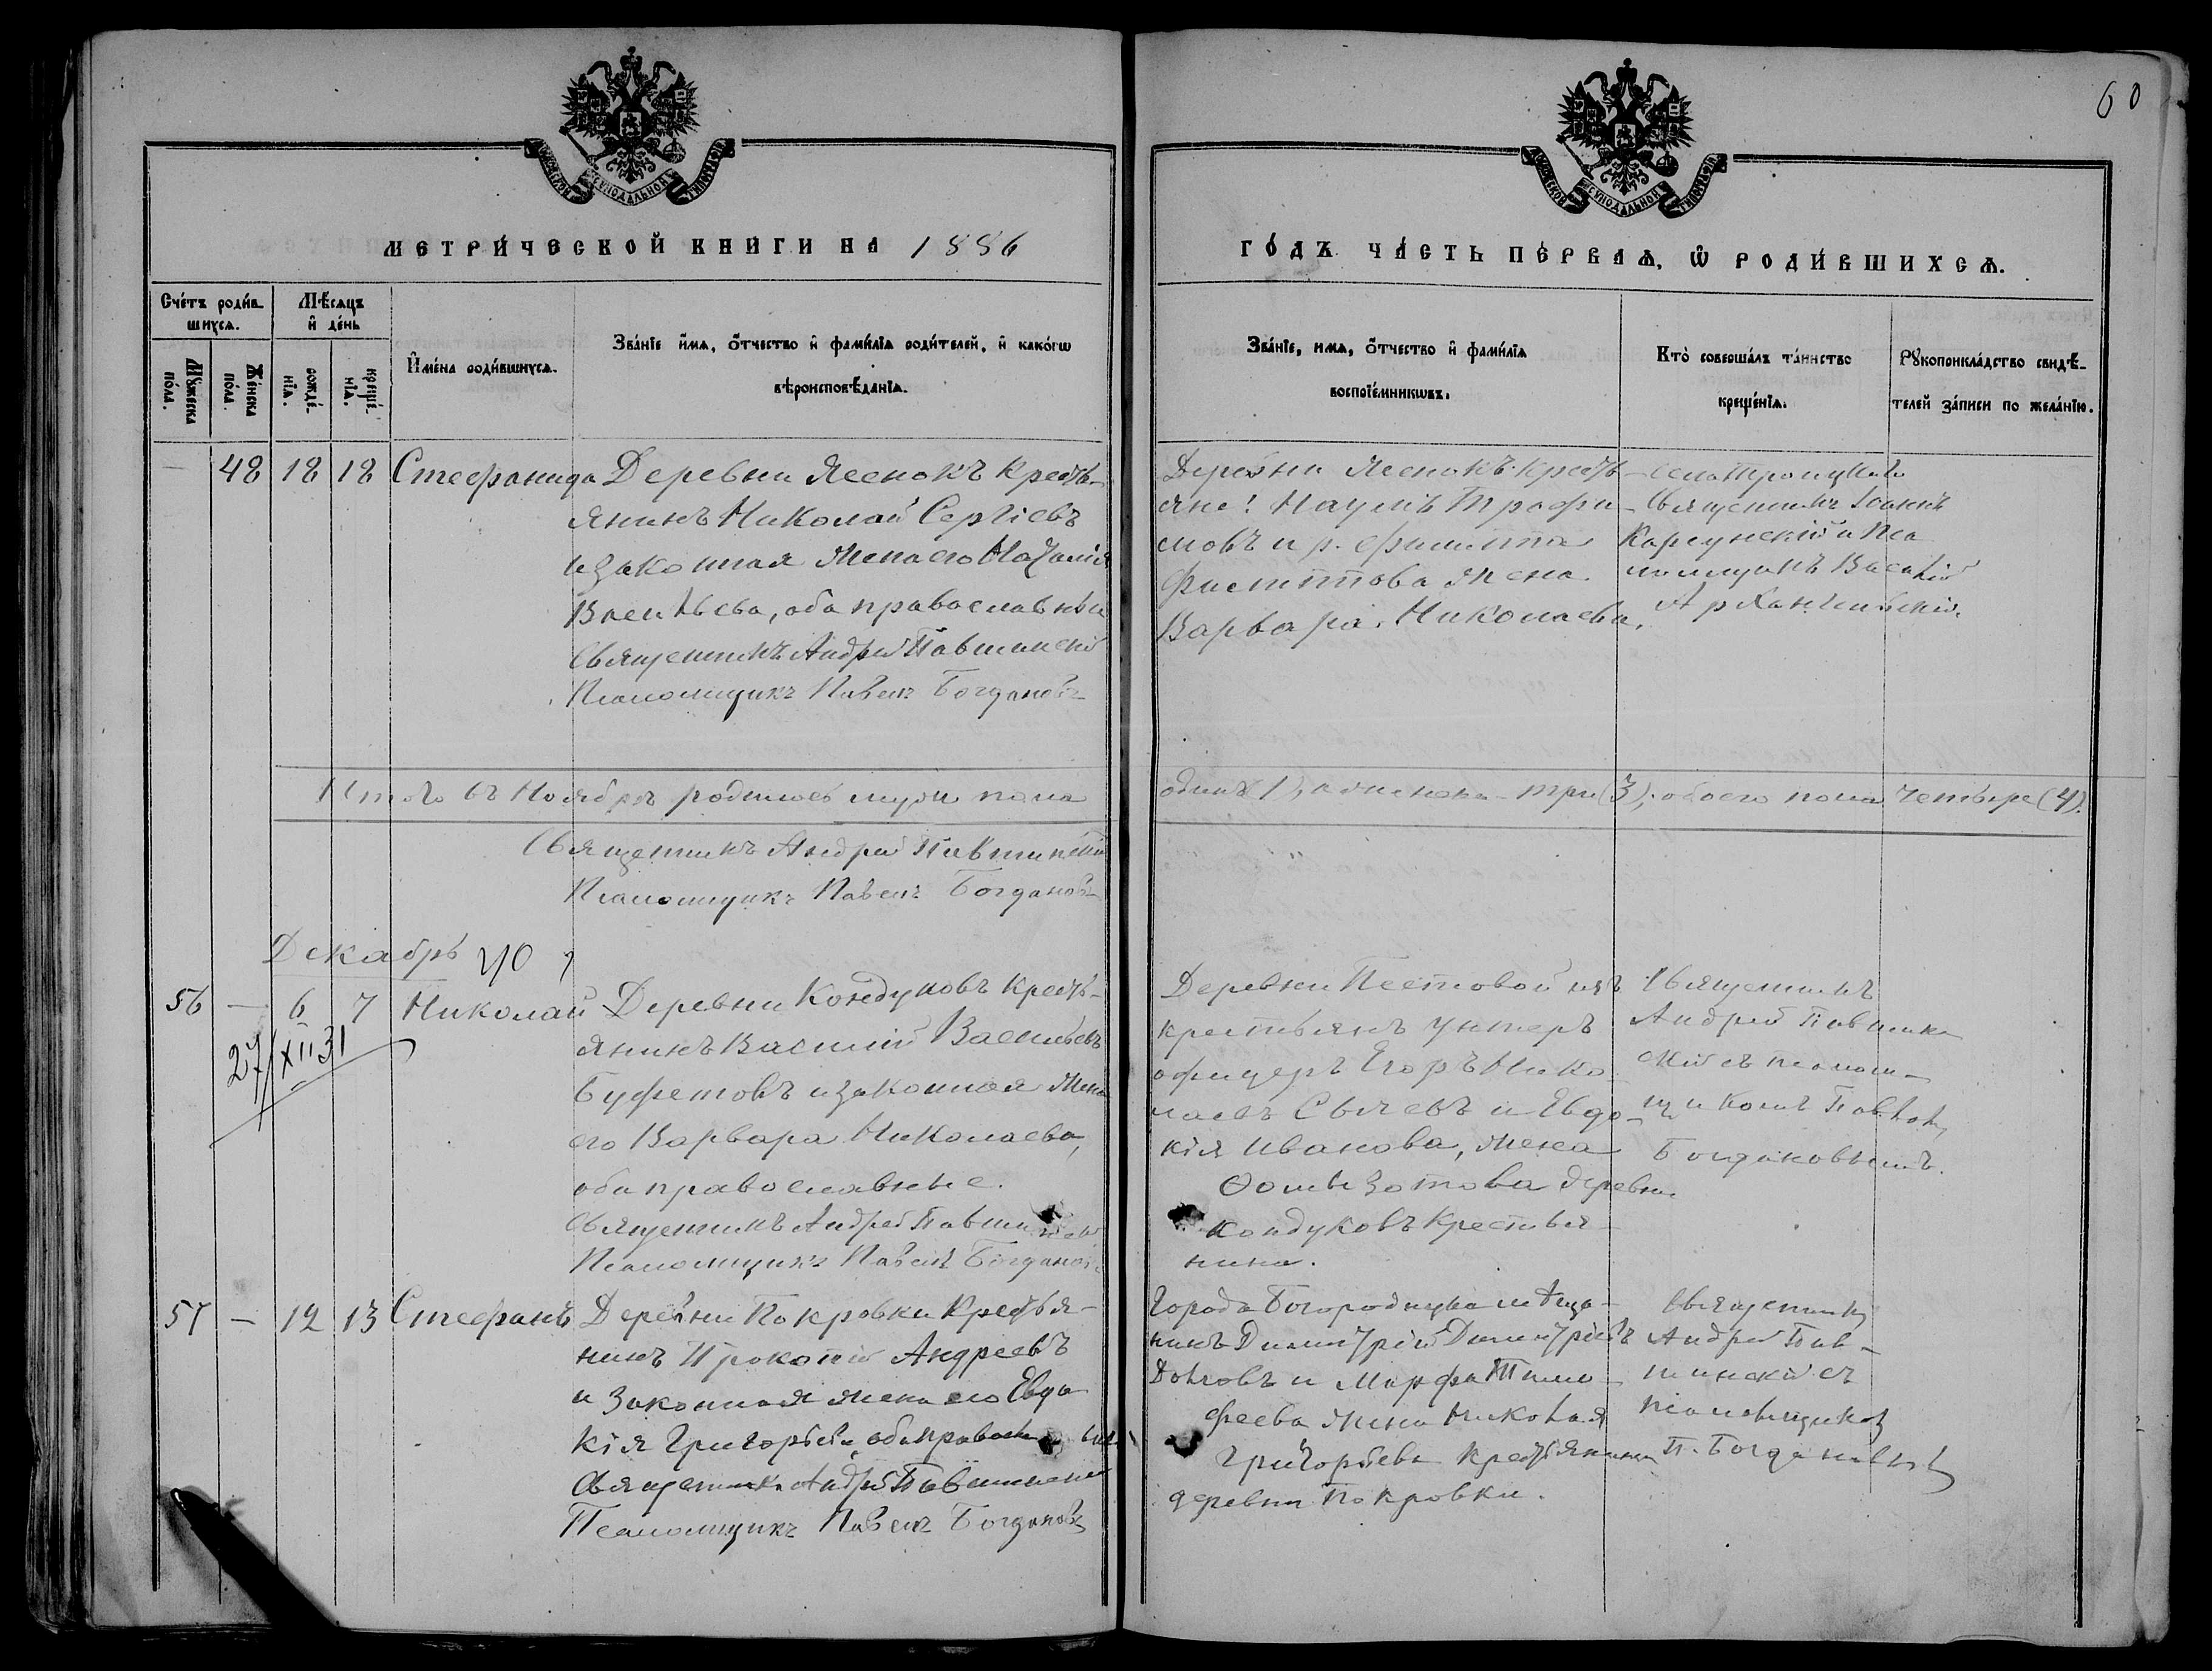 60
МЕТРИ́ЧЕСКОЙ КНИ́ГИ НА 1886
ГО́ДЪ ЧА́СТЬ ПЕ́РВАѦ, Ѡ РОДИ́ВШИХСѦ.
Сче́тъ роди́в-
шихсѧ.
Мꙋ́жеска по́ла.
Же́нска по́ла.
Мѣ́сѧцъ
и҆ де́нь
рожде́-
нїѧ.
креще́-
нїѧ.
И҆мена̀ роди́вшихсѧ.
Зва́нїе и҆́мѧ, ѻ҆́тчество и҆ фами́лїѧ роди́телей, и҆ како́гѡ
вѣроисповѣ́данїѧ.
Зва́нїе, и҆́мѧ, ѻ҆́тчество и҆ фами́лїѧ
воспрїе́мникѡвъ.
Кто̀ соверша́лъ та́инство
креще́нїѧ.
Рꙋкоприкла́дство свидѣ́-
телей за́писи по жела́нїю.
— 48 18 18 Стефанида
Деревни Ясенокъ кресть-
янинъ Николай Сергіевъ
и законная жена его Наталія
Васильева, оба православные
Священникъ Андрей Павшинскій
Псаломщикъ Павелъ Богдановъ
Деревни Ясенокъ кресть-
яне: Наумъ Трофи-
мовъ и р. Филиппа
Филиппова жена
Варвара Николаева.
Села Троицкаго
Священникъ Іоаннъ
Карсунскій и Пса
ломщикъ Василій
Архангельскій.
Итого въ Ноябрѣ родилось мужи пола
одинъ 1), а женска – три (3), обоего пола четыре (4).
Священникъ Андрей Павшинскій
Псаломщикъ Павелъ Богдановъ
Декабрь
56 — 6 7 Николай
27/XII 31
Деревни Кондуковъ кресть-
янинъ Василій Васильевъ
Буфетовъ и законная жена
его Варвара Николаева,
оба православные.
Священникъ Андрей Павшинскій
Псаломщикъ Павелъ Богдановъ
Деревни Пестовой изъ
крестьянъ унтеръ
офицеръ Егоръ Нико
лаевъ Сычевъ и Евдо-
кія Иванова, жена
Ѳомы Зотова деревни
Кондуковъ крестья-
нина.
Священникъ
Андрей Павшин
скій съ псалом-
щикомъ Павломъ
Богдановымъ.
57 — 12 13 Стефанъ
Деревни Покровки крестья-
нинъ Прокопій Андреевъ
и законная жена его Евдо
кія Григорьева, оба православные
Священникъ Андрей Павшинскій
Псаломщикъ Павелъ Богдановъ
Города Богородицка мѣща-
нинъ Димитрій Димитріевъ
Долговъ и Марфа Тимо-
феева жена Николая
Григорьева крестьянина
деревни Покровки.
Священникъ
Андрей Пав-
шинскій съ
псаломщикомъ
П. Богдановымъ